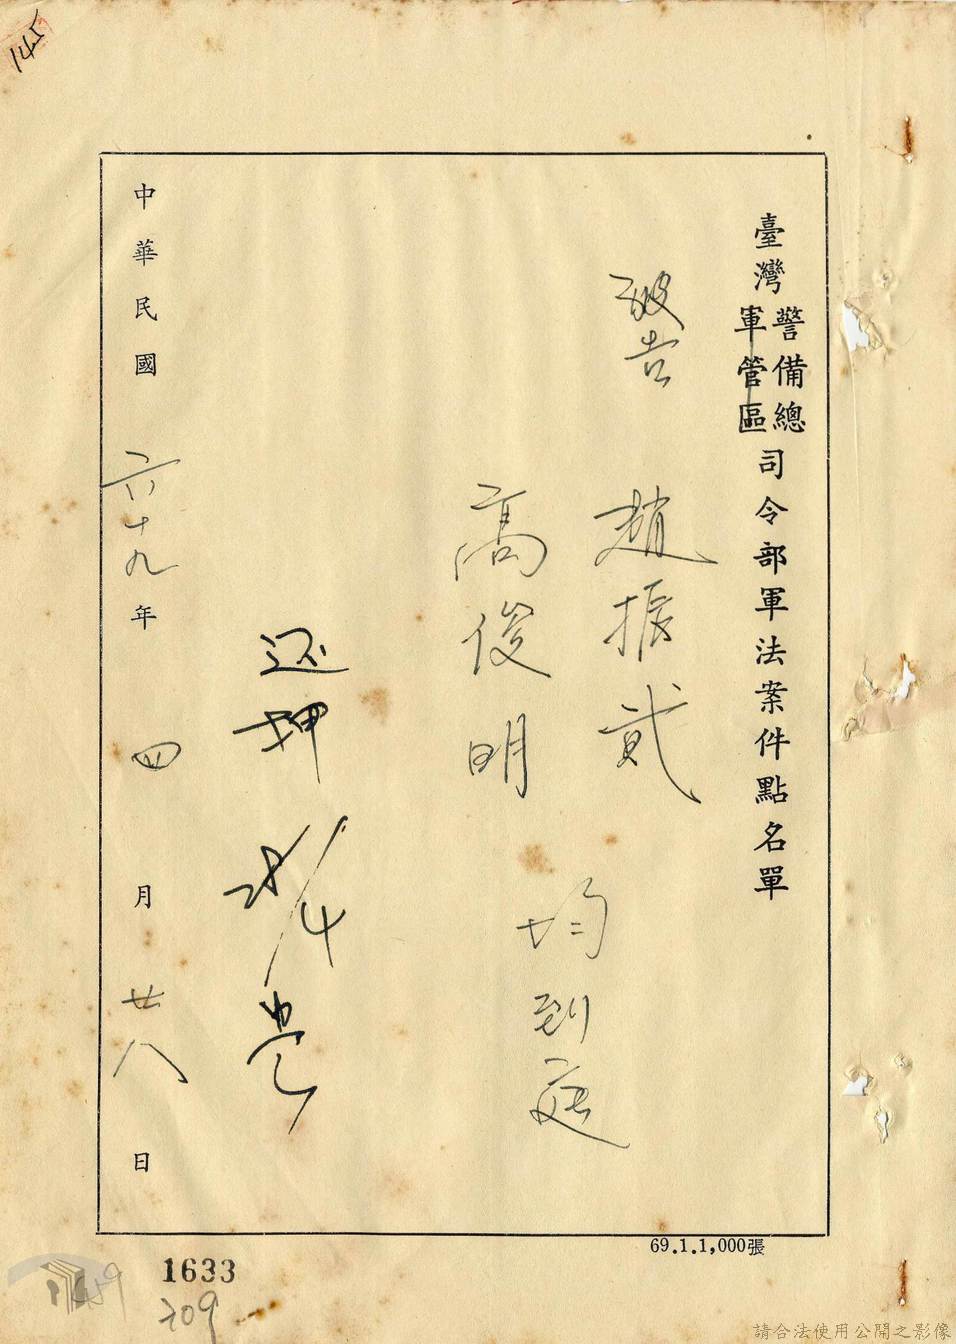 145
臺灣警備總軍管區司令部軍法案件點名單
被告
趙振貳
高俊明
均到庭
还押
28/4
中華民國六十九年四月廿八日
69.1.1,000張
1633
709
請合法使用公開之影像